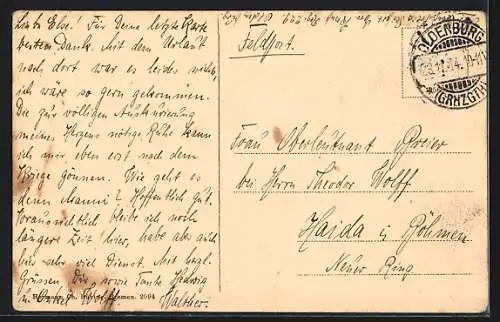 Liebe Else! Für Deine letzte Karte
besten Dank. Mit dem Urlaub
nach dort war es leider nichts,
ich wäre so gern gekommen.
Die zur völligen Auskurierung
meines Herzens nötige Ruhe kann
ich mir eben erst nach dem
Kriege gönnen. Wie geht es
denn Manni? Hoffentlich gut.
Voraussichtlich bleibe ich noch
längere Zeit hier, habe aber auch
hier sehr viel Dienst. Mit herzl.
Grüssen Dir, sowie Tante Hedwig
u. Onkel Wolff
Walther.
Feldpost.
OLDENBURG
(GRHZGTH)
Frau Oberleutnant
bei Herrn Theodor Wolff
Haida i/ Böhmen
Neuer Ring.
Bremen. 2904